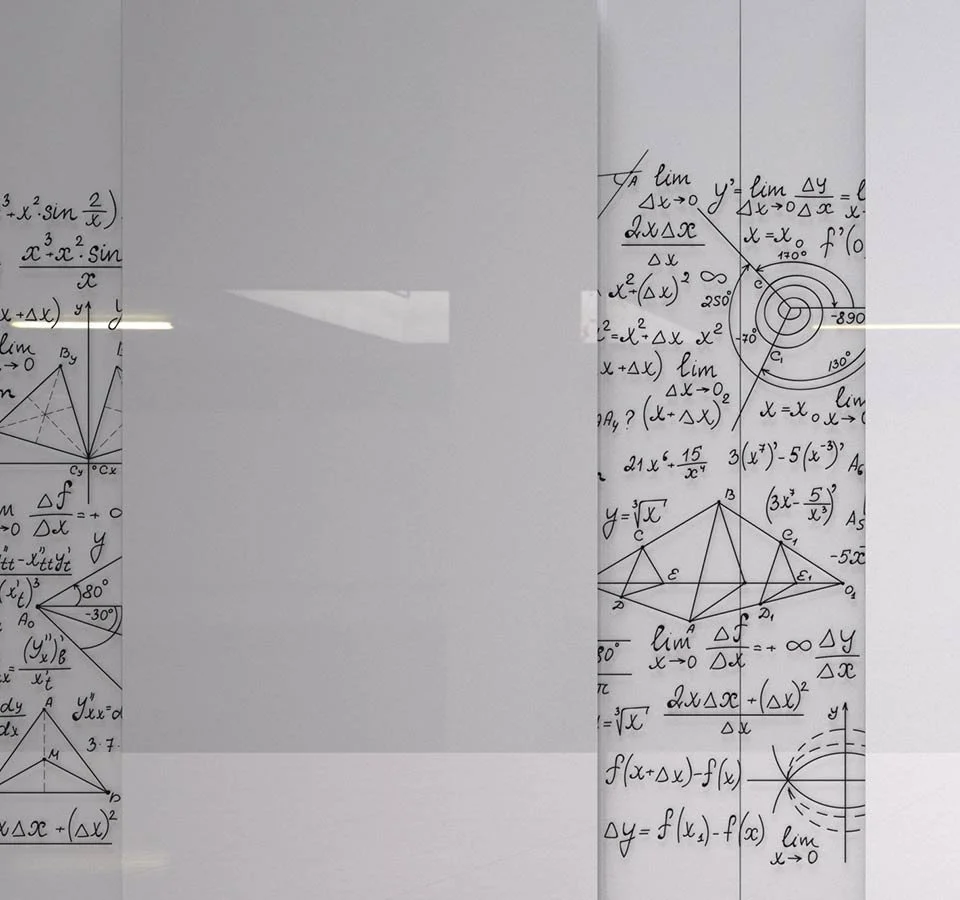 ³+x²·sin 2/x)
x³+x²·sin
x
x+Δx) y
lim
→0
By
Cy °Cx
Δf/Δx = + 0
→0
y
"tt - x"tt y't
(x't)³
80°
-30°
A₀
= (y"x)'B / x't
dy/dx
A
y"xx=
M
3·7
D
xΔx + (Δx)²
A lim
Δx→0
y' = lim Δy/Δx =
Δx→0
2xΔx
Δx
x=x₀ f'(0
170°
x²+(Δx)² ∞
250°
C
-890
²=x²+Δx x²
-70°
C₁
130°
x+Δx) lim
Δx→0₂
A₄? (x+Δx)²
x=x₀ lim
x→0
21x⁶+15/x⁴ 3(x⁷)'-5(x⁻³)' A₆
B
(3x⁷-5/x³)' A₅
y=³√x
C
C₁
-5x
E
E₁
O₁
D
D₁
A
80°
π
lim Δf/Δx = + ∞ Δy/Δx
x→0
2xΔx + (Δx)²
Δx
=³√x
y
f(x+Δx)-f(x)
Δy= f(x₁)-f(x) lim
x→0